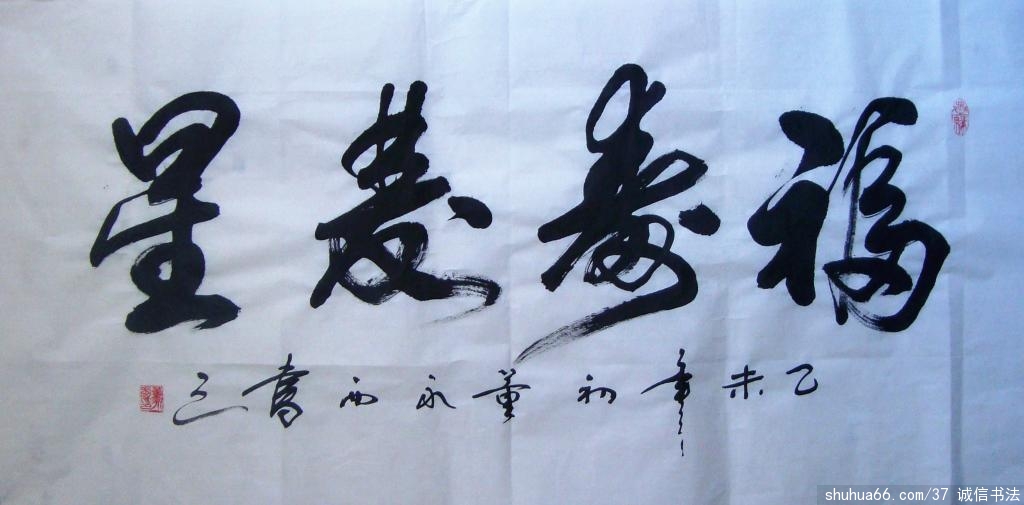 福壽雙星
乙未年初董永西書之
shuhua66.com/37 诚信书法